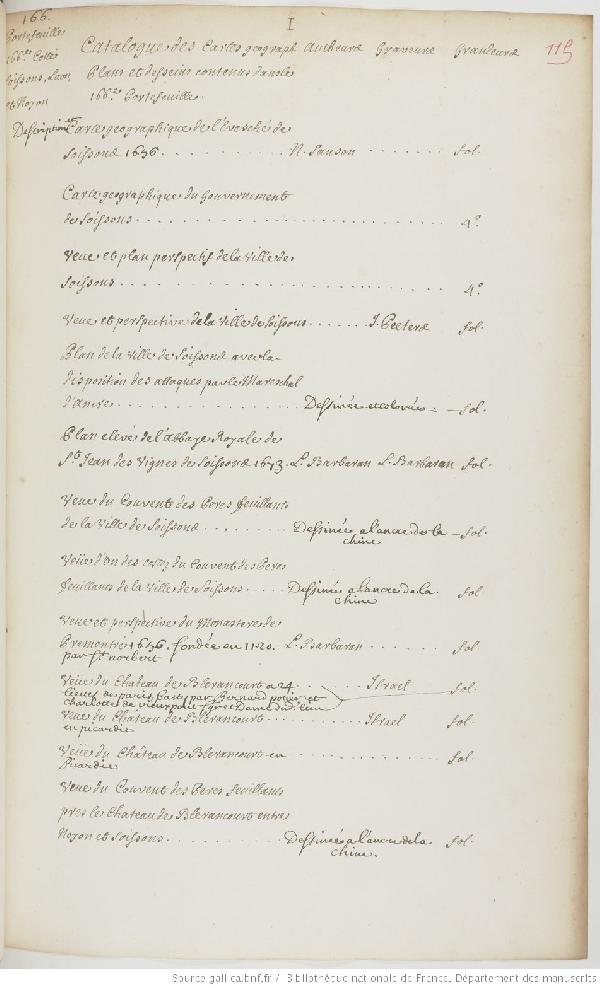 166.
I
115
Portefeuille
166.e Costé
Soissons, Laon
et Noyon
Catalogue des Cartes geograph Autheurs Graveurs Grandeurs
Plans et desseins contenus dans le
166.e Portefeuille.
Description
Carte geographique de l'Evesché de
Soissons 1656. N. Sanson fol.
Carte geographique du Gouvernement
de Soissons 4°
Veue et plan perspectif de la Ville de
Soissons 4°
Veue et perspective de la Ville de Soissons J. Peeters fol.
Plan de la Ville de Soissons avec la
disposition des attaques par le Mareschal
d'Ancre Dessinée et colorée fol.
Plan elevé de l'Abbaye Royale de
St. Jean des Vignes de Soissons 1673. L. Barbaran L. Barbaran fol.
Veue du Couvent des Peres feuillants
de la Ville de Soissons Dessinée a l'ancre de la fol.
chine
Veüe d'un des costez du Couvent des Peres
feuillants de la Ville de Soissons Dessinée a l'ancre de la fol.
chine
Veue et perspective du Monastere de
Premontré 1656. fondée en 1120. L. Barbaran fol.
par St. norbert
Veüe du Chateau de Blerancourt a 24 Israel fol.
lieues de paris, basty par Bernard potier et
charlotte de vieux pont Sgr et Dame dud. lieu
Veue du Château de Blerancourt Israel fol.
en picardie
Veüe du Château de Blerancourt en fol.
Picardie
Veue du Couvent des Peres feuillants
pres le Chateau de Blerancourt entre
Noyon et Soissons. Dessinée a l'ancre de la fol.
chine.
Source gallica.bnf.fr / Bibliothèque nationale de France. Département des manuscrits